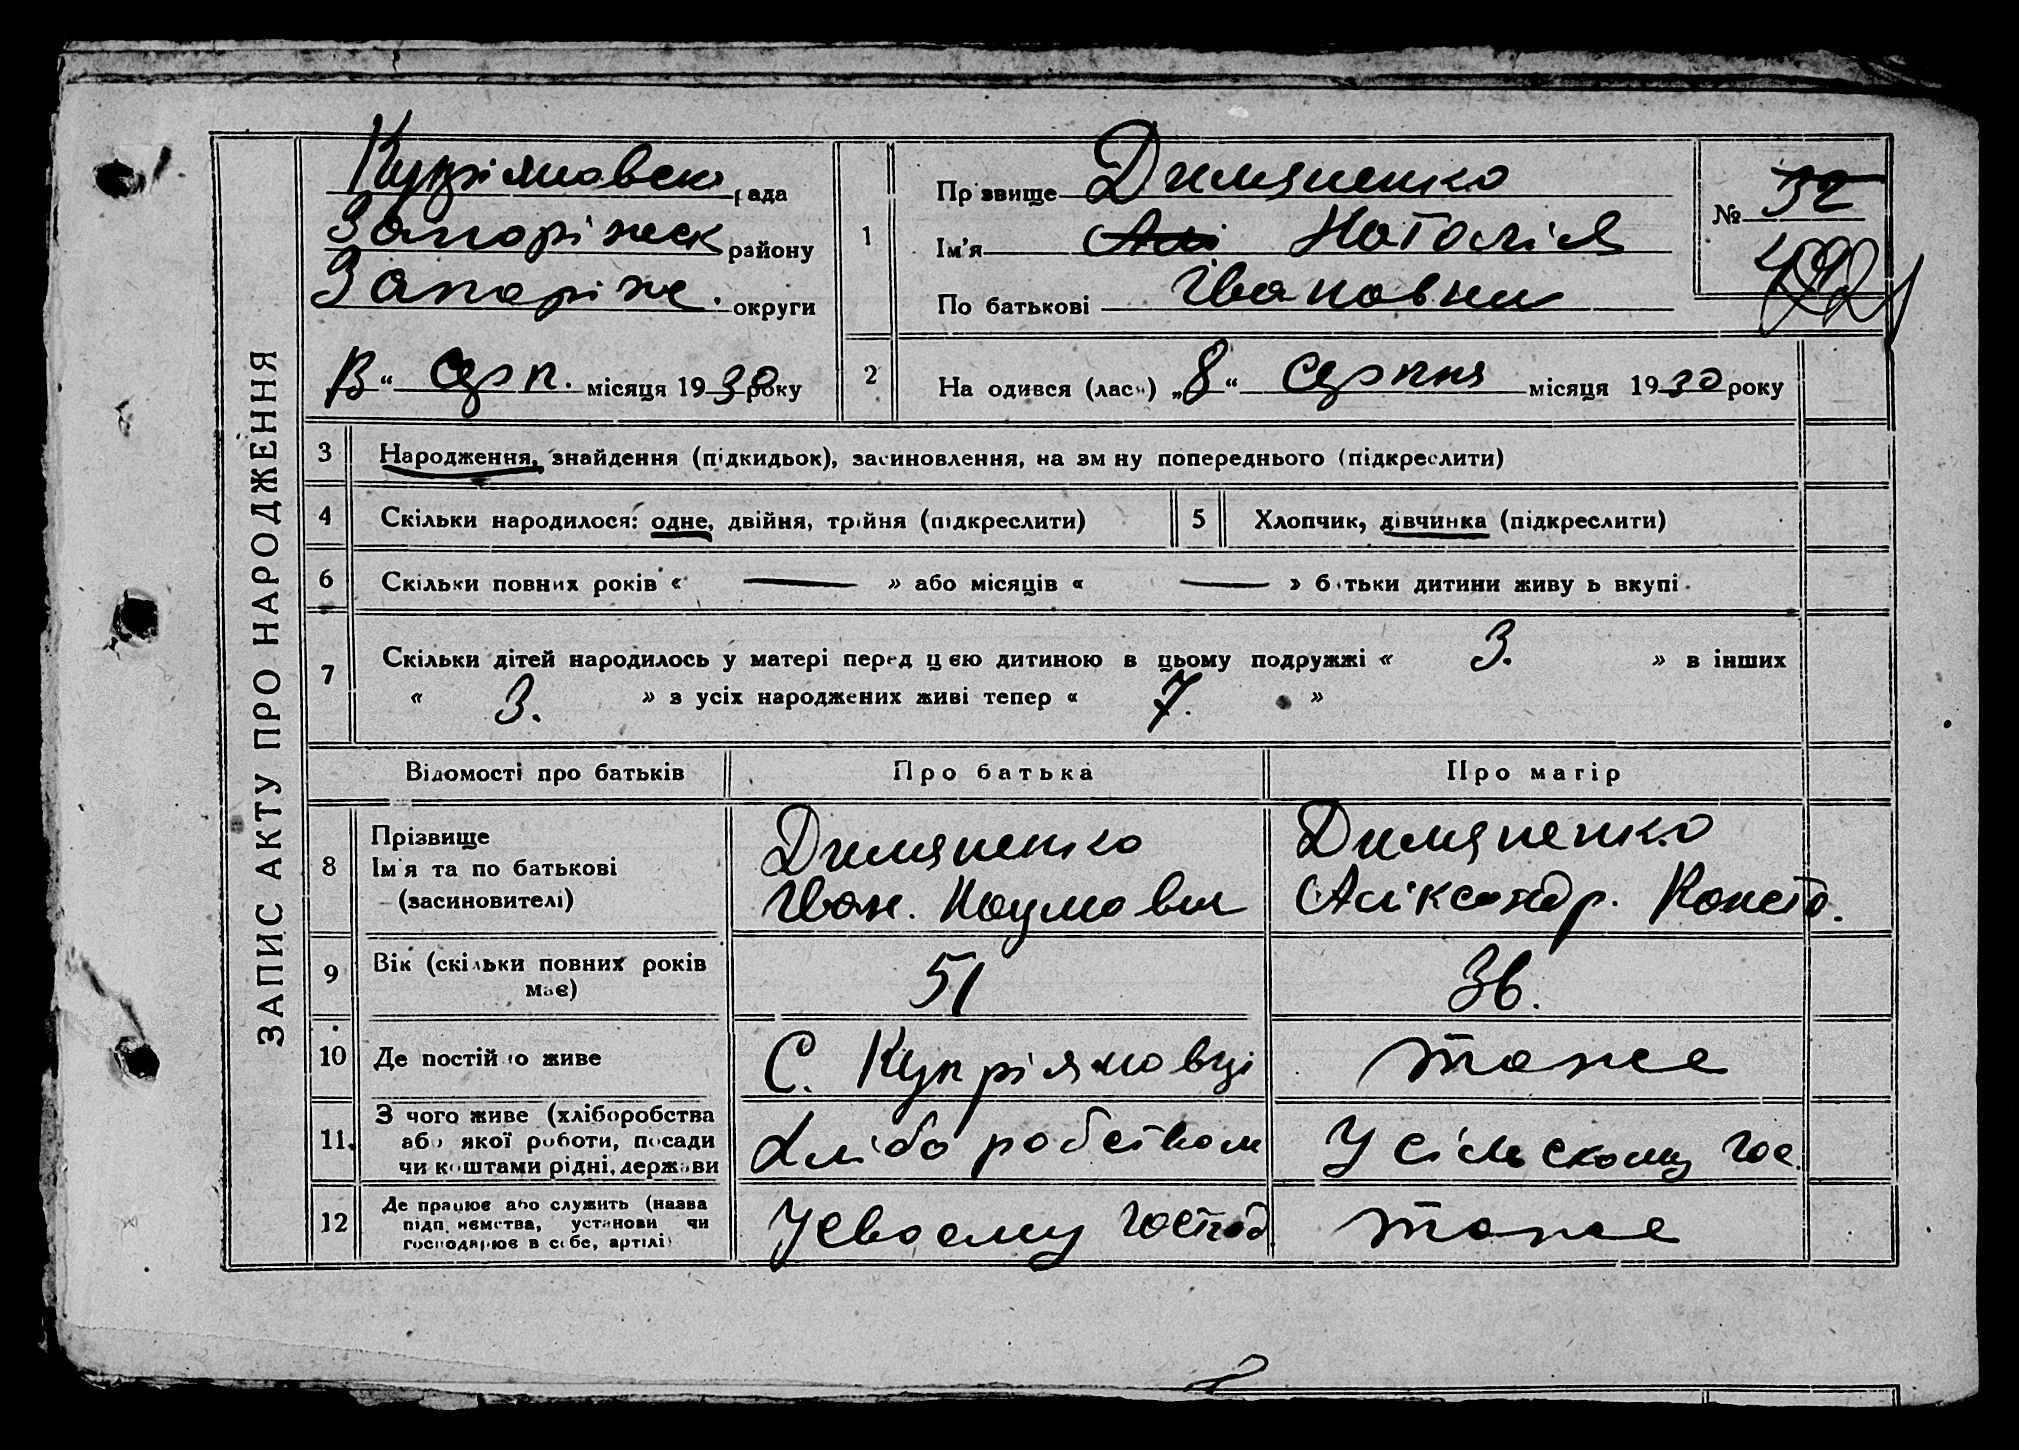 ЗАПИС АКТУ ПРО НАРОДЖЕННЯ
Купріяновськ рада
Запоріжськ району
Запоріж. округи
13 “ серп. місяця 1930 року
1
Прізвище Димяненко
Ім'я Наталія
По батькові Івановни
№ 32
2
На одився (лась) „8“ серпня місяця 1930 року
3 Народження, знайдення (підкидьок), засиновлення, на зм ну попереднього (підкреслити)
4 Скільки народилося: одне, двійня, трійня (підкреслити)
5 Хлопчик, дівчинка (підкреслити)
6 Скільки повних років « — » або місяців « — » б тьки дитини живу ь вкупі
7 Скільки дітей народилось у матері перед цією дитиною в цьому подружжі « 3. » в інших
« 3. » з усіх народжених живі тепер « 7. »
Відомості про батьків Про батька Про матір
8 Прізвище
Ім'я та по батькові
(засиновителі)
Димяненко
Іван. Наумови
Димяненко
Аліксандр. Конста.
9 Вік (скільки повних років
має)
51
36.
10 Де постійно живе
С. Купріяновці
тоже
11. З чого живе (хліборобства
або якої роботи, посади
чи коштами рідні, держави
Хліборобством
У сільскому гос.
12 Де працює або служить (назва
підп иємства, установи чи
господарює в себе, артілі)
У своєму господ
тоже